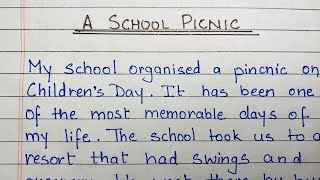 A SCHOOL PICNIC
My school organised a pincnic on
Children's Day. It has been one
of the most memorable days of
my life. The school took us to a
resort that had swings and